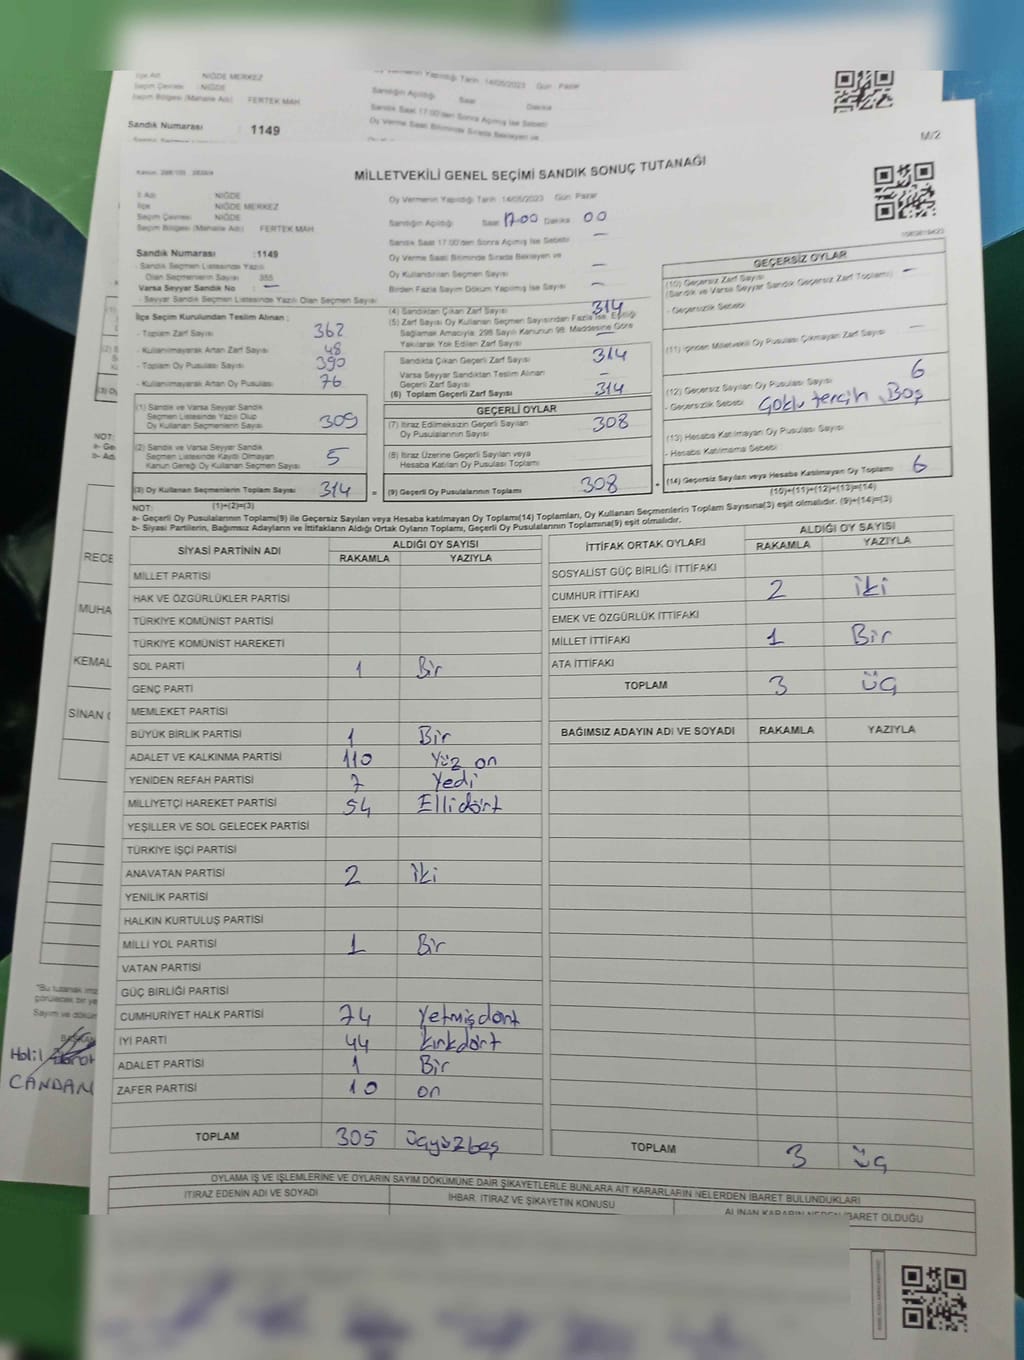 İlçe Adı NİĞDE MERKEZ
Seçim Çevresi : NİĞDE
Seçim Bölgesi (Mahalle Adı) FERTEK MAH
Oy Vermenin Yapıldığı Tarih : 14/05/2023 Gün : Pazar
Sandığın Açıldığı Saat Dakika
Sandık Saat 17:00'den Sonra Açılmış
Oy Verme Saati Bitiminde Sırada Bekleyen ve
Sandık Numarası : 1149
M/2
MİLLETVEKİLİ GENEL SEÇİMİ SANDIK SONUÇ TUTANAĞI
İl Adı : NİĞDE
İlçe : NİĞDE MERKEZ
Seçim Çevresi : NİĞDE
Seçim Bölgesi (Mahalle Adı) : FERTEK MAH
Oy Vermenin Yapıldığı Tarih : 14/05/2023 Gün : Pazar
Sandığın Açıldığı Saat 17:00 Dakika 00
Sandık Saat 17:00'den Sonra Açılmış İse Sebebi —
Oy Verme Saati Bitiminde Sırada Bekleyen ve
Oy Kullandırılan Seçmen Sayısı —
Birden Fazla Sayım Döküm Yapılmış İse Sayısı —
Sandık Numarası :1149
- Sandık Seçmen Listesinde Yazılı
Olan Seçmenlerin Sayısı : 355
Varsa Seyyar Sandık No : —
- Seyyar Sandık Seçmen Listesinde Yazılı Olan Seçmen Sayısı
İlçe Seçim Kurulundan Teslim Alınan ;
- Toplam Zarf Sayısı 362
- Kullanılmayarak Artan Zarf Sayısı 48
- Toplam Oy Pusulası Sayısı 390
- Kullanılmayarak Artan Oy Pusulası 76
(1) Sandık ve Varsa Seyyar Sandık
Seçmen Listesinde Yazılı Olup
Oy Kullanan Seçmenlerin Sayısı 309
(2) Sandık ve Varsa Seyyar Sandık
Seçmen Listesinde Kaydı Olmayan
Kanun Gereği Oy Kullanan Seçmen Sayısı 5
(3) Oy Kullanan Seçmenlerin Toplam Sayısı 314
(1)+(2)=(3)
(4) Sandıktan Çıkan Zarf Sayısı 314
(5) Zarf Sayısı Oy Kullanan Seçmen Sayısından Fazla İse, Eşitliği
Sağlamak Amacıyla; 298 Sayılı Kanunun 98. Maddesine Göre
Yakılarak Yok Edilen Zarf Sayısı —
Sandıkta Çıkan Geçerli Zarf Sayısı 314
Varsa Seyyar Sandıktan Teslim Alınan
Geçerli Zarf Sayısı —
(6) Toplam Geçerli Zarf Sayısı 314
GEÇERLİ OYLAR
(7) İtiraz Edilmeksizin Geçerli Sayılan
Oy Pusulalarının Sayısı 308
(8) İtiraz Üzerine Geçerli Sayılan veya
Hesaba Katılan Oy Pusulası Toplamı
= (9) Geçerli Oy Pusulalarının Toplamı 308
GEÇERSİZ OYLAR
(10) Geçersiz Zarf Sayısı
(Sandık ve Varsa Seyyar Sandık Geçersiz Zarf Toplamı) —
- Geçersizlik Sebebi
(11) İçinden Milletvekili Oy Pusulası Çıkmayan Zarf Sayısı —
(12) Geçersiz Sayılan Oy Pusulası Sayısı 6
- Geçersizlik Sebebi Çoklu tercih, Boş
(13) Hesaba Katılmayan Oy Pusulası Sayısı
- Hesaba Katılmama Sebebi
+ (14) Geçersiz Sayılan veya Hesaba Katılmayan Oy Toplamı 6
(10)+(11)+(12)+(13)=(14)
NOT:
a- Geçerli Oy Pusulalarının Toplamı(9) ile Geçersiz Sayılan veya Hesaba katılmayan Oy Toplamı(14) Toplamları, Oy Kullanan Seçmenlerin Toplam Sayısına(3) eşit olmalıdır. (9)+(14)=(3)
b- Siyasi Partilerin, Bağımsız Adayların ve İttifakların Aldığı Ortak Oyların Toplamı, Geçerli Oy Pusulalarının Toplamına(9) eşit olmalıdır.
SİYASİ PARTİNİN ADI ALDIĞI OY SAYISI
RAKAMLA YAZIYLA
MİLLET PARTİSİ
HAK VE ÖZGÜRLÜKLER PARTİSİ
TÜRKİYE KOMÜNİST PARTİSİ
TÜRKİYE KOMÜNİST HAREKETİ
SOL PARTİ 1 Bir
GENÇ PARTİ
MEMLEKET PARTİSİ
BÜYÜK BİRLİK PARTİSİ 1 Bir
ADALET VE KALKINMA PARTİSİ 110 Yüz on
YENİDEN REFAH PARTİSİ 7 Yedi
MİLLİYETÇİ HAREKET PARTİSİ 54 Ellidört
YEŞİLLER VE SOL GELECEK PARTİSİ
TÜRKİYE İŞÇİ PARTİSİ
ANAVATAN PARTİSİ 2 İki
YENİLİK PARTİSİ
HALKIN KURTULUŞ PARTİSİ
MİLLİ YOL PARTİSİ 1 Bir
VATAN PARTİSİ
GÜÇ BİRLİĞİ PARTİSİ
CUMHURİYET HALK PARTİSİ 74 Yetmişdört
İYİ PARTİ 44 Kırkdört
ADALET PARTİSİ 1 Bir
ZAFER PARTİSİ 10 on
TOPLAM 305 üçyüzbeş
İTTİFAK ORTAK OYLARI ALDIĞI OY SAYISI
RAKAMLA YAZIYLA
SOSYALİST GÜÇ BİRLİĞİ İTTİFAKI
CUMHUR İTTİFAKI 2 İki
EMEK VE ÖZGÜRLÜK İTTİFAKI
MİLLET İTTİFAKI 1 Bir
ATA İTTİFAKI
TOPLAM 3 üç
BAĞIMSIZ ADAYIN ADI VE SOYADI RAKAMLA YAZIYLA
TOPLAM 3 üç
OYLAMA İŞ VE İŞLEMLERİNE VE OYLARIN SAYIM DÖKÜMÜNE DAİR ŞİKAYETLERLE BUNLARA AİT KARARLARIN NELERDEN İBARET BULUNDUKLARI
İTİRAZ EDENİN ADI VE SOYADI İHBAR, İTİRAZ VE ŞİKAYETİN KONUSU ALINAN KARARIN NEDEN İBARET OLDUĞU
NOT:
RECE
MUHA
KEMAL
SİNAN
"Bu tutanak
Sayım ve döküm
BAŞKAN
Halil
CANDAN